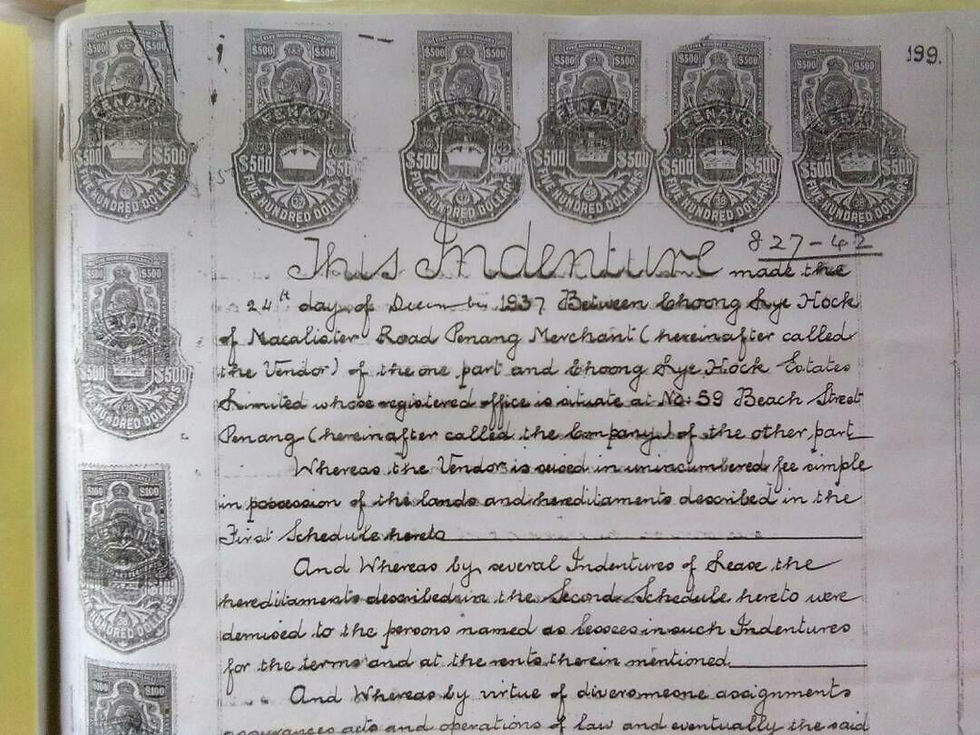 FIVE HUNDRED DOLLARS FIVE HUNDRED DOLLARS FIVE HUNDRED DOLLARS FIVE HUNDRED DOLLARS FIVE HUNDRED DOLLARS FIVE HUNDRED DOLLARS
$500 $500 $500 $500 $500 $500 $500 $500 $500 $500 $500
199.
PENANG PENANG PENANG PENANG PENANG PENANG
$500 $500 $500 $500 $500 $500 $500 $500 $500 $500 $500 $500
FIVE HUNDRED DOLLARS FIVE HUNDRED DOLLARS FIVE HUNDRED DOLLARS FIVE HUNDRED DOLLARS FIVE HUNDRED DOLLARS FIVE HUNDRED DOLLARS
827-42
This Indenture made the
24th day of December 1937 Between Choong Lye Hock
of Macalister Road Penang Merchant (hereinafter called
the Vendor) of the one part and Choong Lye Hock Estates
Limited whose registered office is situate at No: 59 Beach Street
Penang (hereinafter called the Company) of the other part
Whereas the Vendor is seised in unincumbered fee simple
in possession of the lands and hereditaments described in the
First Schedule hereto
And Whereas by several Indentures of Lease the
hereditaments described in the Second Schedule hereto were
demised to the persons named as lessees in such Indentures
for the terms and at the rents therein mentioned.
And Whereas by virtue of divers mesne assignments
assurances acts and operations of law and eventually the said
$500 $500
PENANG
$500 $500
FIVE HUNDRED DOLLARS
$100 $100
PENANG
$100
HUNDRED DOLLARS
$100 $100